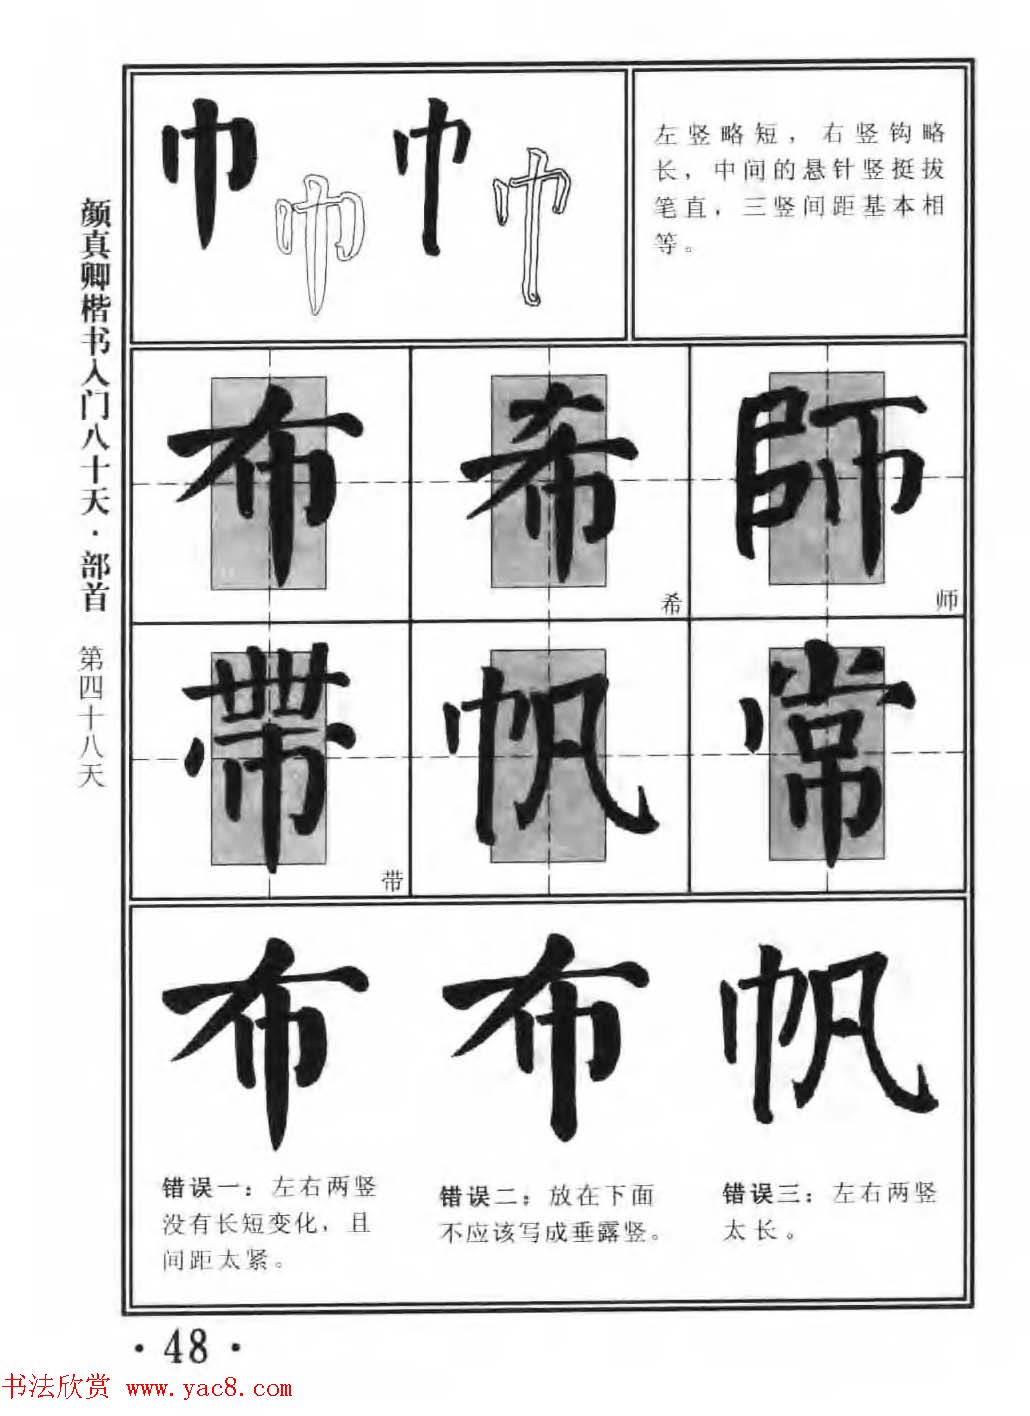 颜真卿楷书入门八十天·部首 第四十八天
巾 巾 巾 巾
左竖略短，右竖钩略
长，中间的悬针竖挺拔
笔直，三竖间距基本相
等。
布 希 師
希 师
帶 帆 常
带
布 布 帆
错误一：左右两竖
没有长短变化，且
间距太紧。
错误二：放在下面
不应该写成垂露竖。
错误三：左右两竖
太长。
·48·
书法欣赏 www.yac8.com